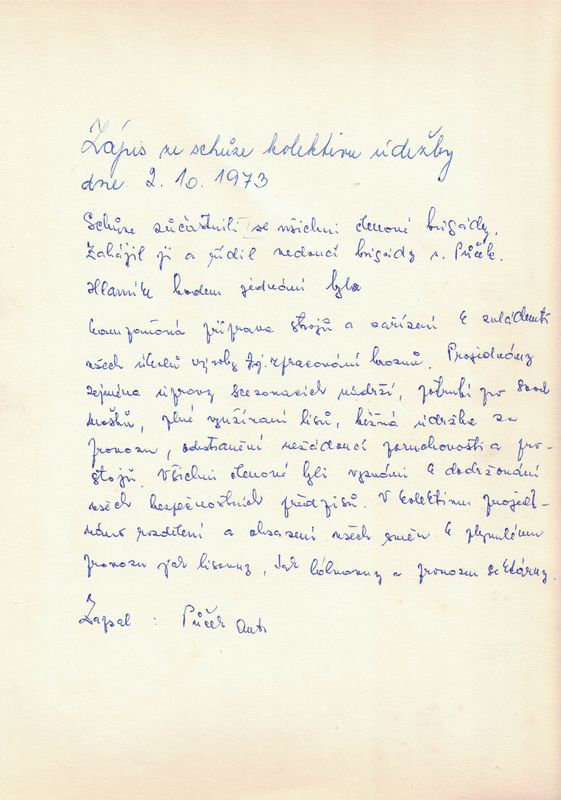 Zápis ze schůze kolektivu údržby
dne 2. 10. 1973
Schůze zůčastnili se všichni členové brigády.
Zahájil ji a řídil vedoucí brigády s. Půček.
Hlavním bodem jednání byla
příprava strojů a zařízení k zvládnutí
všech úkolů výroby zpracování hroznů. Projednány
zejména úpravy nádrží, potrubí pro
moštů, plné využívaní lisů, běžná údržba za
provozu, odstranění nežádoucí poruchovosti a pro-
stojů. Všichni členové byli vyzváni k dodržování
všech bezpečnostních předpisů. V kolektivu projed-
náno rozdělení a obsazení všech směn k plynulému
provozu jak lisovny, tak lahvovny a provozu sektárny.
Zapsal : Půček Ant.